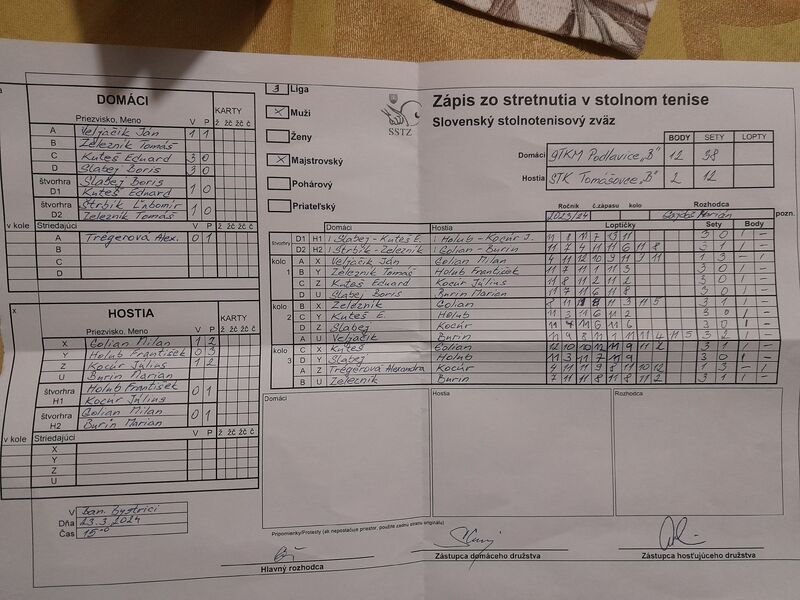 3 Liga
x Muži
Ženy
x Majstrovský
Pohárový
Priateľský
SSTZ
Zápis zo stretnutia v stolnom tenise
Slovenský stolnotenisový zväz
BODY SETY LOPTY
Domáci ŠTKM Podlavice "B" 12 38
Hostia STK Tomášovce "B" 2 12
Ročník č.zápasu kolo Rozhodca
2023/24 Marián pozn.
DOMÁCI
Priezvisko, Meno V P KARTY
ž žč žč č
A Veljačik Ján 1 1
B Železnik Tomáš
C Kuteš Eduard 3 0
D Slabej Boris 3 0
štvorhra D1 Slabej Boris
Kuteš Eduard 1 0
štvorhra D2 Štrbík Ľubomír
Železnik Tomáš 1 0
v kole Striedajúci V P ž žč žč č
A Trégerová Alex. 0 1
B
C
D
x HOSTIA
Priezvisko, Meno V P KARTY
ž žč žč č
X Golian Milan 1 2
Y Holub František 0 3
Z Kocúr Július 1 2
U Burin Marian
štvorhra H1 Holub František
Kocúr Július 0 1
štvorhra H2 Golian Milan
Burin Marian 0 1
v kole Striedajúci V P ž žč žč č
X
Y
Z
U
V Ban. Bystrici
Dňa 23.3.2024
Čas 15°°
Domáci Hostia Loptičky Sety Body
štvorhry D1 H1 Slabej - Kuteš E. Holub - Kocúr J. 3 0 1 -
D2 H2 Štrbík - Železnik Golian - Burin 11 7 4 11 11 6 11 8 3 1 1 -
kolo 1 A X Veljačik Ján Golian Milan 4 11 12 10 9 11 9 11 1 3 - 1
B Y Železnik Tomáš Holub František 3 0 1 -
C Z Kuteš Eduard Kocúr Július 11 8 11 2 11 2 3 0 1 -
D U Slabej Boris Burin Marian 11 7 11 6 11 8 3 0 1 -
kolo 2 B X Železnik Golian 8 11 11 8 11 3 11 5 3 1 1 -
C Y Kuteš E. Holub 11 3 11 6 11 2 3 0 1 -
D Z Slabej Kocúr 11 4 11 6 11 6 3 0 1 -
A U Veljačik Burin 3 2 1 -
kolo 3 C X Kuteš Golian 3 1 1 -
D Y Slabej Holub 11 3 11 7 11 9 3 0 1 -
A Z Trégerová Alexandra Kocúr 4 11 11 9 8 11 10 12 1 3 - 1
B U Železnik Burin 7 11 11 8 11 8 11 2 3 1 1 -
Domáci Hostia Rozhodca
Pripomienky/Protesty (ak nepostačuje priestor, použite zadnú stranu originálu)
Hlavný rozhodca
Zástupca domáceho družstva
Zástupca hosťujúceho družstva